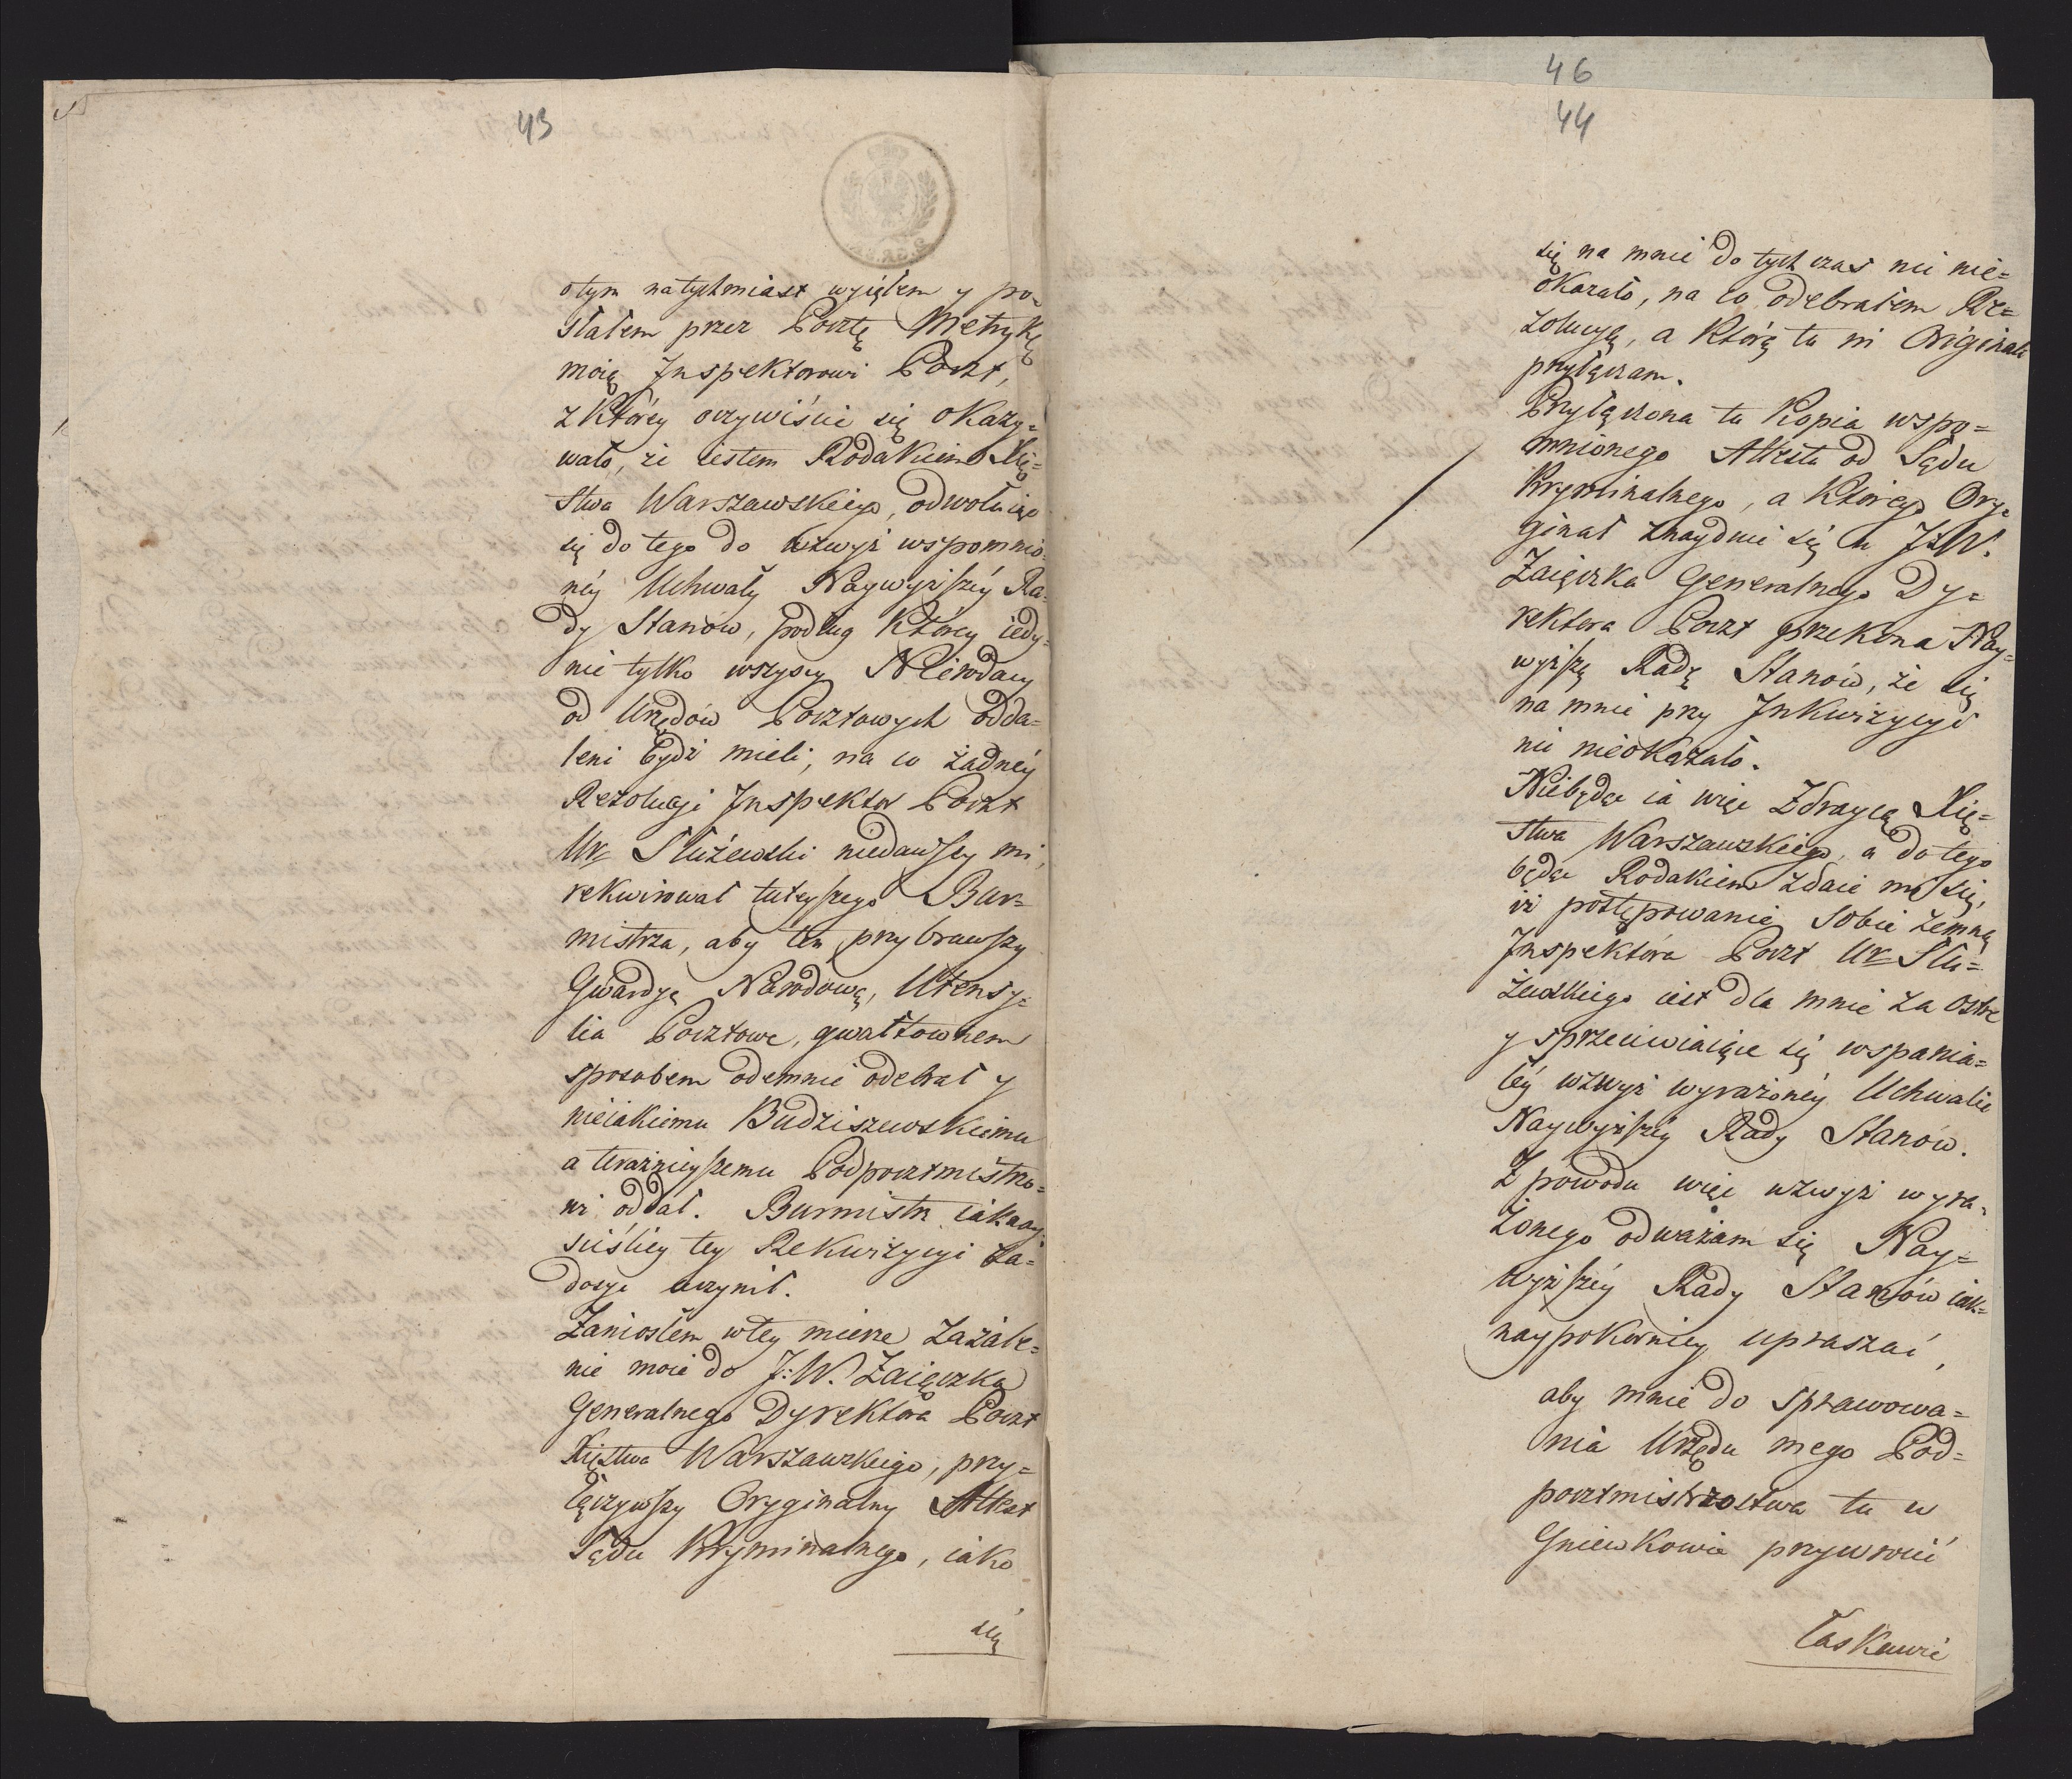 43
otym natychmiast wyiąłem y po=
słałem przez Pocztę Metrykę
moię Inspektorowi Poczt,
z Ktorey oczywiście się okazy=
wało, że iestem Rodakiem Xię=
stwa Warszawskiego, odwołuiąc
się do tego do wzwyż wspomnio
néy Uchwały Naywyższéy Ra=
dy Stanów, podług Ktorey iedy=
nie tylko wszyscy Nierodacy
od Urzędów Pocztowych odda=
leni bydź mieli, na co żadnéy
Rezolucyi Inspektor Poczt
Ur Służewski niedawszy mi,
rekwirował tuteyszego Bur=
mistrza, aby ten przybrawszy
Gwardyą Narodową, Utensy=
lia Pocztowe, gwałtownem
sposobem odemnie odebrał y
nieiakiemu Budziszewskiemu
a teraźnieyszemu Podpocztmistrzo=
wi oddał. Burmistrz iaknay
ściśley tey Rekwizycyi za=
dosyć uczynił.
Zaniosłem w tey mierze zażale=
nie moie do J:W. Zaiączka
Generalnego Dyrektora Poczt
Xięstwa Warszawskiego, przy=
łączywszy Oryginalny Attest
Sądu Kryminalnego, iako
się
46
44
się na mnie do tych czas nic nie=
okazało, na co odebrałem Re=
zolucyą, a Którą tu in Originali
przyłączam.
Przyłączona tu Kopia wspo=
mnionego Attestu od Sądu
Kryminalnego, a Ktorego Ory=
ginał znayduie się u J:W.
Zaiączka Generalnego Dy=
rektora Poczt przekona Nay=
wyższą Radę Stanów, że się
na mnie przy Inkwizycyi
nic nieokazało.
Niebędąc ia więc Zdraycą Xię=
stwa Warszawskiego, a do tego
będąc Rodakiem zdaie mi się,
iż postępowanie sobie zemną
Inspektora Poczt Ur Słu=
żewskiego iest dla mnie za ostre
y sprzeciwiaiące się wspania=
łéy wzwyż wyrażonéy Uchwalie
Naywyższéy Rady Stanów.
Z powodu więc wzwyż wyra=
żonego odważam się Nay=
wyższéy Rady Stanów iak=
naypokorniey upraszać,
aby mnie do sprawowa=
nia Urzędu mego Pod=
pocztmistrzostwa tu w
Gniewkowie przywrócić
łaskawie